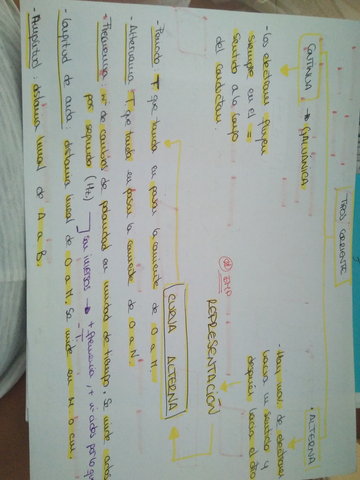 TIPOS CORRIENTE
CONTINUA → GALVÁNICA
- Los electrones fluyen
siempre en el =
sentido a lo largo
del conductor.
• ALTERNA
- Hay mov. de electrones
hacia un sentido y
después hacia el otro
REPRESENTACIÓN
CURVA ALTERNA
- Periodo: T que tarda en pasar la corriente de O a M.
- Alternancia: T que tarda en pasar la corriente de O a N.
- Frecuencia: nº de cambios de polaridad en unidad de tiempo. Se mide ciclos
por segundo (Hz) son inversos → + frecuencia, + nº ciclos por
- Longitud de onda: distancia lineal de O a M. Se mide en M o cm.
- Amplitud: distancia lineal de A a B.